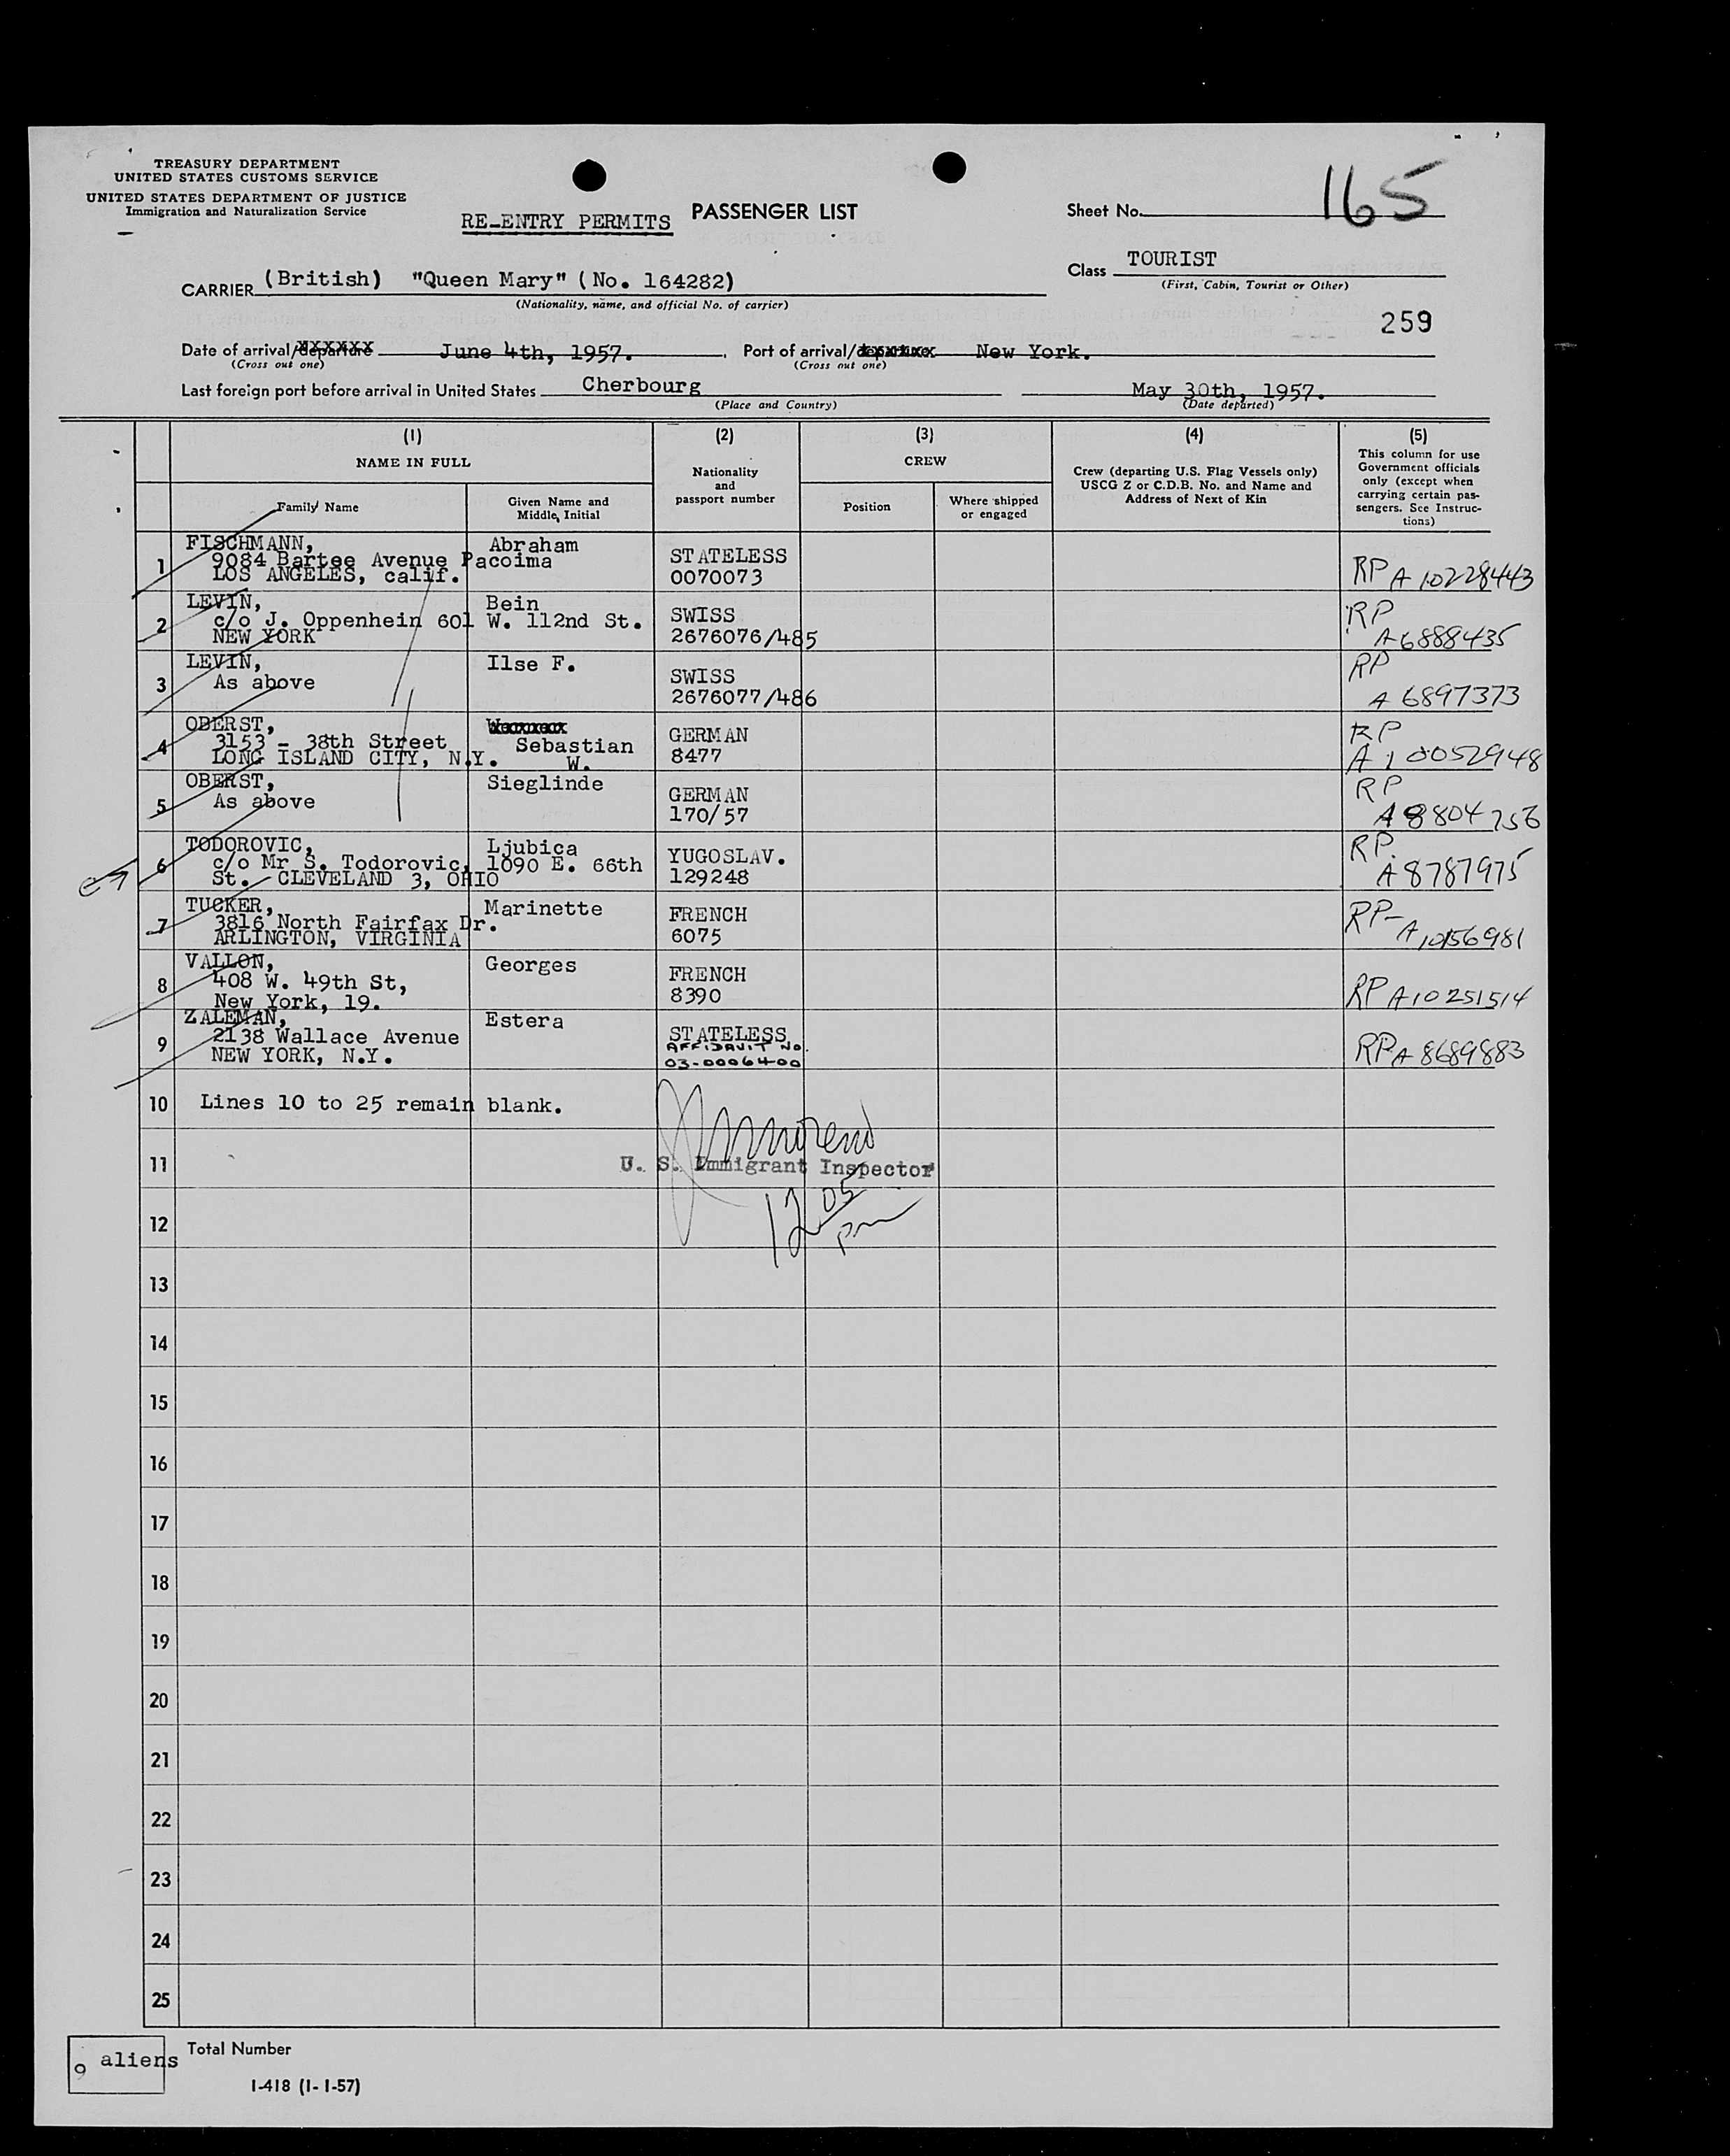 TREASURY DEPARTMENT
UNITED STATES CUSTOMS SERVICE
UNITED STATES DEPARTMENT OF JUSTICE
Immigration and Naturalization Service
RE-ENTRY PERMITS PASSENGER LIST
Sheet No. 165
Class TOURIST
(First, Cabin, Tourist or Other)
CARRIER (British) "Queen Mary" (No. 164282)
(Nationality, name, and official No. of carrier)
259
Date of arrival/departure June 4th, 1957. Port of arrival/departure New York.
(Cross out one) (Cross out one)
Last foreign port before arrival in United States Cherbourg May 30th, 1957.
(Place and Country) (Date departed)
(1) (2) (3) (4) (5)
NAME IN FULL
Family Name
Given Name and
Middle Initial
Nationality
and
passport number
CREW
Position
Where shipped
or engaged
Crew (departing U.S. Flag Vessels only)
USCG Z or C.D.B. No. and Name and
Address of Next of Kin
This column for use
Government officials
only (except when
carrying certain pas-
sengers. See Instruc-
tions)
1 FISCHMANN, Abraham
9084 Bartee Avenue Pacoima
LOS ANGELES, calif.
STATELESS
0070073
RP A 10228443
2 LEVIN, Bein
c/o J. Oppenhein 601 W. 112nd St.
NEW YORK
SWISS
2676076/485
RP
A 6888435
3 LEVIN, Ilse F.
As above
SWISS
2676077/486
RP
A 6897373
4 OBERST,
3153 - 38th Street Sebastian
LONG ISLAND CITY, N.Y. W.
GERMAN
8477
RP
A 10052948
5 OBERST, Sieglinde
As above
GERMAN
170/57
RP
A 8804756
6 TODOROVIC, Ljubica
c/o Mr S. Todorovic, 1090 E. 66th
St. CLEVELAND 3, OHIO
YUGOSLAV.
129248
RP.
A 8787975
7 TUCKER, Marinette
3816 North Fairfax Dr.
ARLINGTON, VIRGINIA
FRENCH
6075
RP-
A10156981
8 VALLON, Georges
408 W. 49th St,
New York, 19.
FRENCH
8390
RP A10251514
9 ZALEMAN, Estera
2138 Wallace Avenue
NEW YORK, N.Y.
STATELESS
AFFIDAVIT No.
03-0006400
RP A 8689883
10 Lines 10 to 25 remain blank.
11 U. S. Immigrant Inspector
12 12 05 pm
13
14
15
16
17
18
19
20
21
22
23
24
25
9 aliens Total Number
I-418 (1-1-57)